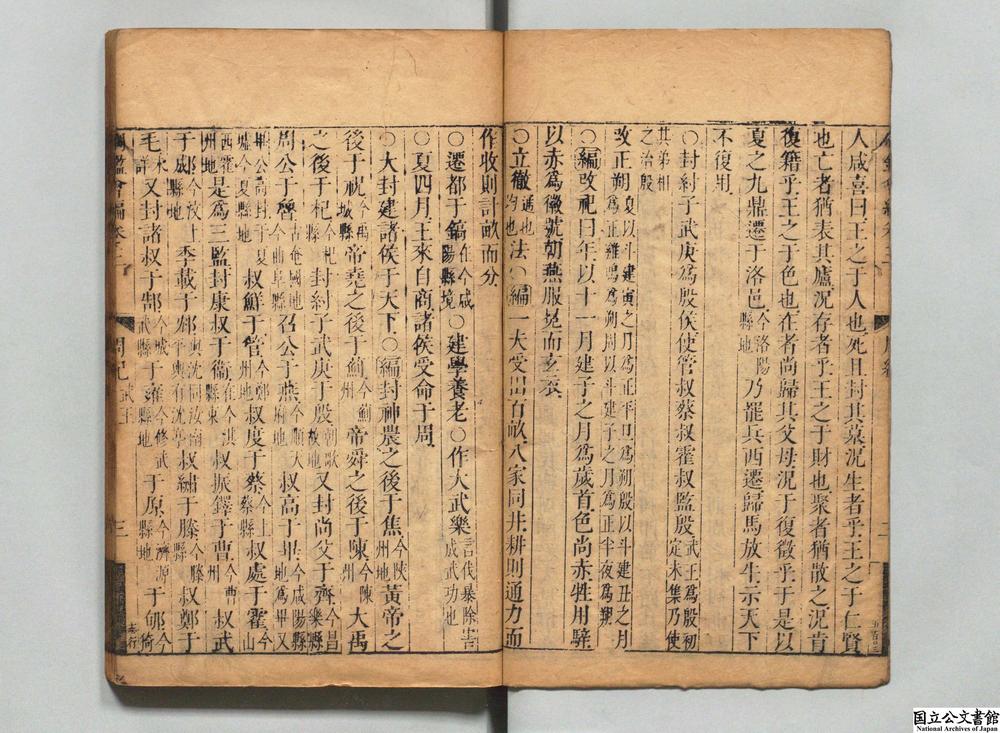 人咸喜曰王之于人也死且封其墓況生者乎王之于仁賢
也亡者猶表其廬況存者乎王之于財也聚者猶散之況肯
復籍乎王之于色也在者尚歸其父母況于復徵乎于是以
夏之九鼎遷于洛邑今洛陽縣地乃罷兵西還歸馬放牛示天下
不復用
〇封紂子武庚爲殷侯使管叔蔡叔霍叔監殷武王爲殷初定未集乃使
其弟相之治殷
改正朔夏以斗建寅之月爲正平旦爲朔殷以斗建丑之月爲正雞鳴爲朔周以斗建子之月爲正半夜爲朔
〇編改祀曰年以十一月建子之月爲歲首色尚赤牲用騂
以赤爲徽號朝燕服冕而玄衣
〇立徹通也均也法〇編一夫受田百畝八家同井耕則通力而
作收則計畝而分
〇遷都于鎬在今咸陽縣境〇建學養老〇作大武樂言伐暴除害成武功也
〇夏四月王來自商諸侯受命于周
〇大封建諸侯于天下〇編封神農之後于焦今陝州地黃帝之
後于祝今禹城縣帝堯之後于薊今薊州帝舜之後于陳今陳州大禹
之後于杞今杞縣封紂子武庚于殷朝歌故地又封尚父于齊今昌樂縣
周公于魯古奄國地今曲阜縣召公于燕今順天府地叔高于畢今咸陽縣地爲畢又
畢公高封于夏墟今夏縣叔鮮于管今鄭州地叔度于蔡今上蔡縣叔處于霍今山
西霍州地是爲三監封康叔于衛在今淇縣東叔振鐸于曹今曹州叔武
于郕今汶縣地季載于
毛詳又封諸叔于郜今城武縣于雍今修武縣地于原今濟源縣地于郇今猗
周紀
武王
三
国立公文書館
National Archives of Japan